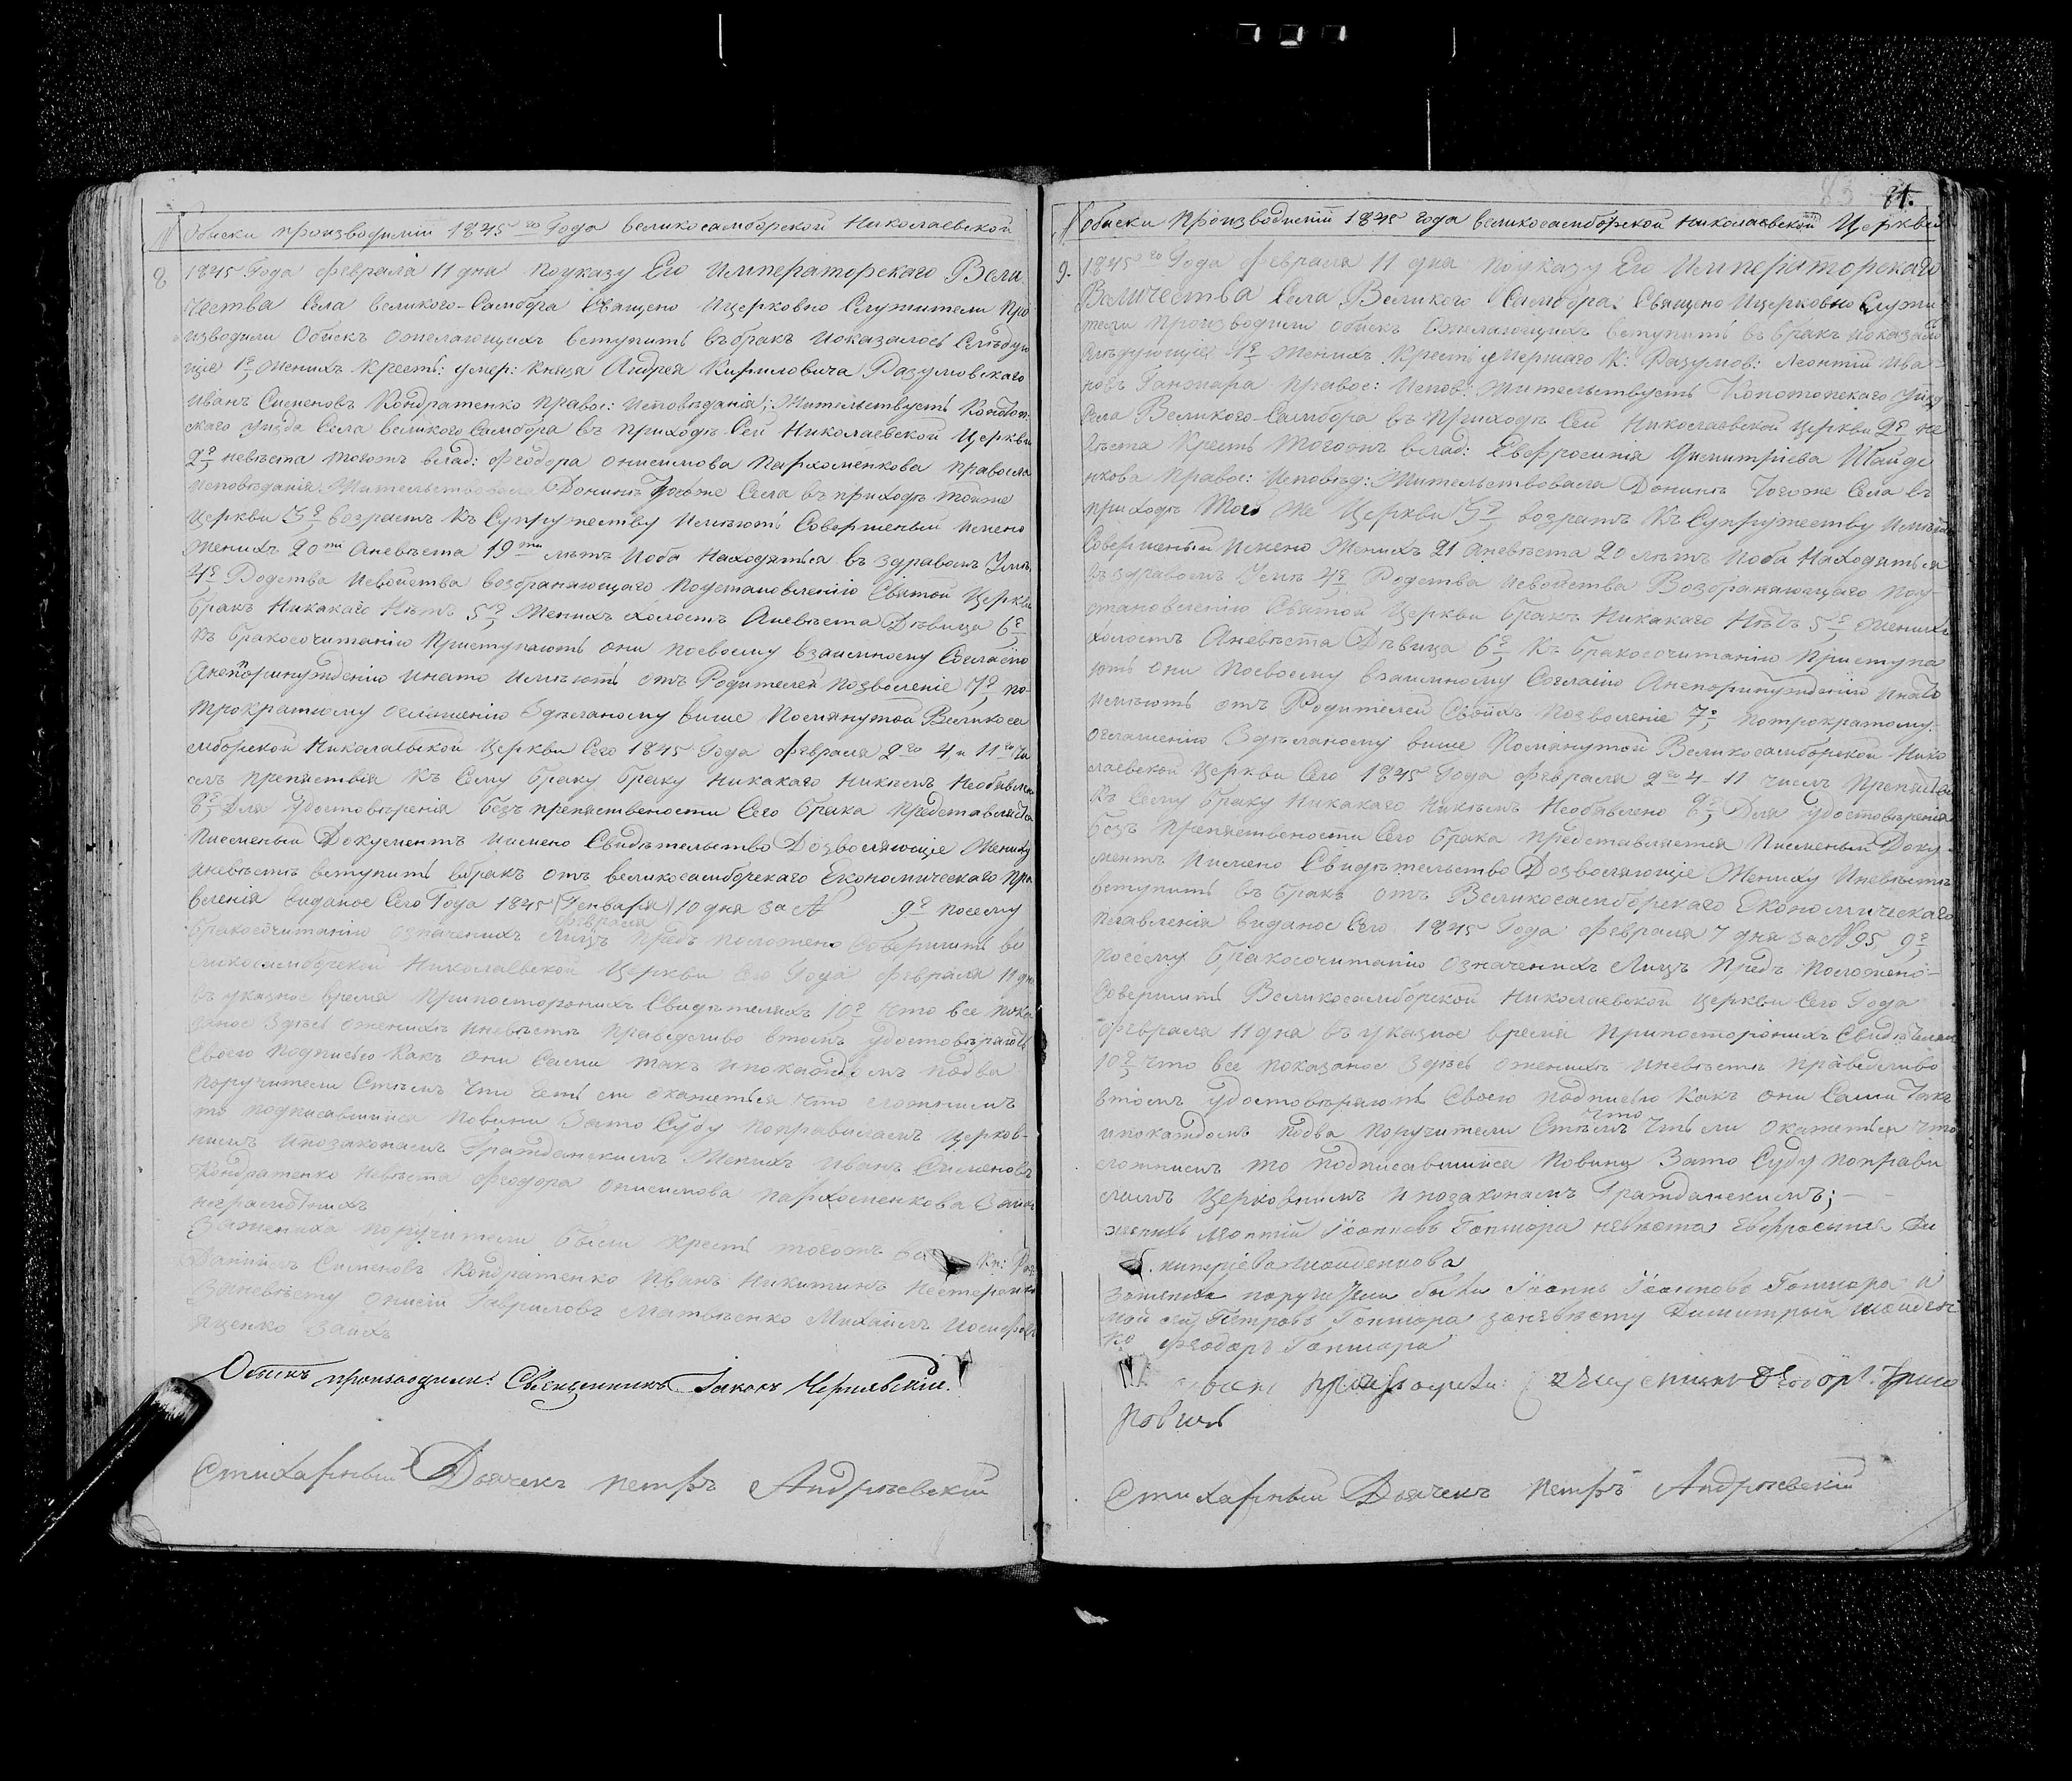 № Обиски производимiи 1845го Года великосамборской Николаевской
8 1845 Года февраля 11 дня поуказу Его Императорскаго Вели
чества Села великого-Самбора Священо Ицерковно Служители Про
изводили Обискъ ожелающихъ вступить вбракъ Иоказалось Слѣдую
щіе 1е, Женихъ кресть: умер: Князя Андрея Кириловича Разумовскаго
Иванъ Сименовъ Кондратенко правос: Исповѣданія; Жительствуетъ Конотоп
скаго уизда Села великого Самбора въ приходѣ Сей Николаевской Церкви
2е, невѣста тогожъ влад: Феодора Онисимова Пархоменкова правосла
Исповѣданія: Жительствовала Донинѣ тогоже Села въ приходѣ тойже
Церкви 3е, возрастъ Къ Супружеству Имѣютъ Совершеный Имено
Женихъ 20ти Аневѣста 19ти лѣтъ Иоба Находяться въ здравомъ Умѣ
4е, Родства Исвойства возбраняющаго Поустановленію Святой Церкви
бракъ Никакаго Нѣтъ 5е, Женихъ холостъ Аневѣста Дѣвица 6е,
къ бракосочитанію Приступаютъ они посвоему взаимному Согласію
Анепоринуждению Инато Имѣютъ отъ Родителей Позволеніе 7е, по
трократному оглашенію Здѣланому више Помянутой Великоса
мборской Николаевской Церкви Сего 1845 Года Февраля 2го 4, и 11го чи
слъ препятствія Къ Сему браку браку Никакаго Никѣмъ Необявлено
8е, Для Удостовѣренія безъ препятствености Сего брака представляется
Писменый Документъ Имено Свидѣтельство Дозволяющіе Жениху
Иневѣстѣ вступить вбракъ отъ великосамборскаго Економическаго Пра
вленія виданое Сего Года 1845 (Генваря) 10 дня за № 9е, посему
февраля
бракосочитанію означенихъ Лицъ предъ положено Совершить ве
ликосамборской Николаевской Церкви Сего Года февраля 11 дня
въ указное время припосторонихъ Свидѣтеляхъ 10е, что все пока
заное Здѣсь оженихѣ Иневѣстѣ праведливо втомъ удостовѣряютъ
Своею подписью Какъ они Сами такъ ипокаждомъ подва
поручители Стѣмъ что Естьли окажеться что ложнимъ
то подписавшиися повини Зато Суду поправиламъ Церков-
нимъ Ипозаконамъ Гражданскимъ Женихъ Иванъ Сименовъ
Кондратенко Невѣста Феодора Онисимова Пархоменкова Заихъ
неграмотнихъ
Зажениха поручители были крестъ тогожъ Кн: Раз
Даніилъ Сименовъ Кондратенко Иванъ Никитинъ Нестеренко
Заневѣсту Онисій Гавриловъ Матвѣенко Михаилъ Иосифовъ
Яценко Заихъ
Обыскъ производили: Священникъ Іаковъ Чернявскій.
Стихарный Дьячекъ Петръ Андрѣевскій
84.
№ Обиски Производимiи 1845 года великосамборской Николаевской Церкви
9. 1845го Года февраля 11 дня поуказу Его Императорскаго
Величества Села Великого Самбора: Священо Ицерковно Служи
тели производили обискъ Ожелающихъ вступить въ бракъ Иоказалось
Слѣдующіе 1е, Женихъ Кресть умершаго К: Разумов: Леонтій Ива-
новъ Ганжара правос: Испов: Жительствуетъ Конотопскаго Уизда
Села Великого-Самбора въ Приходѣ Сей Николаевской Церкви 2е, не
вѣста Кресть тогожъ влад: Евфросинія Димитріева Шайде
нкова Правос: Исповѣд: Жительствовала Донинѣ тогоже Села въ
приходѣ Того же Церкви 3е, возратъ Къ Супружеству Имѣютъ
Совершеный Имено Женихъ 21 Аневѣста 20 лѣтъ Иоба Находяться
въ здравомъ Умѣ 4е, Родства Исвойства Возбраняющаго Поу-
становленію Святой Церкви бракъ Никакаго Нѣтъ 5е, Женихъ
холостъ Аневѣста Дѣвица 6е, Къ бракосочитанію Приступа
ютъ они Посвоему взаимному Согласію Анепоринужденію Инато
Имѣютъ отъ Родителей Своихъ Позволеніе 7е, Потрократному-
оглашенію Здѣланому више Помянутой Великосамборской Нико
лаевской Церкви Сего 1845 Года февраля 2го 4- 11 числъ Препятствія
Къ Сему браку Никакаго Никѣмъ Необявлено 8е, Для Удостовѣренія
безъ Препятствености Сего брака представляется Писменый Доку-
ментъ Имено Свидѣтельство Дозволяющіе Жениху Иневѣстѣ
вступить въ бракъ отъ Великосамборскаго Економическаго
Правленія виданое Сего 1845 Года февраля 7 дня за № 95 9е,
посему бракосочитанію Означенихъ Лицъ Предъ Положено-
Совершить Великосамборской Николаевской Церкви Сего Года
февраля 11 дня въ указное время припосторонихъ Свидѣтеляхъ
10е, что все показаное Здѣсь оженихѣ Иневѣстѣ праведливо
втомъ удостовѣряютъ Своею подписью Какъ они Сами такъ
ипокаждомъ подва поручители Стѣмъ что Естьли окажеться что
ложнимъ то подписавшиися повини Зато Суду поправи
ламъ Церковнимъ Ипозаконамъ Гражданскимъ; —
женихъ Леонтій Іоанновъ Ганжара невѣста Евфросинія Ди
митріева Шайденкова
зажениха поручители были Іоаннъ Іоанновъ Ганжара и
Мойсей Петровъ Ганжара заневѣсту Димитрый Шайден
ко Феодоръ Ганжара
производили: Священникъ Феодоръ Григо
ровичъ
Стихарный Дьячекъ Петръ Андрѣевскій